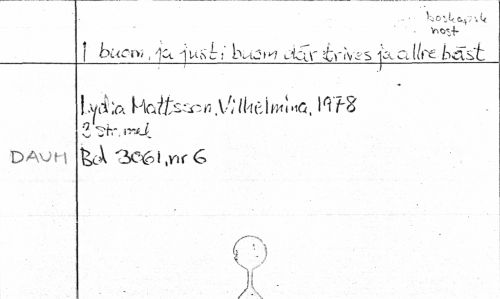 boskapsk
höst
I buom, ja just i buom där trives ja allre bäst
Lydia Mattsson, Vilhelmina, 1978
2 str, mel
DAUM Bd 3061, nr 6